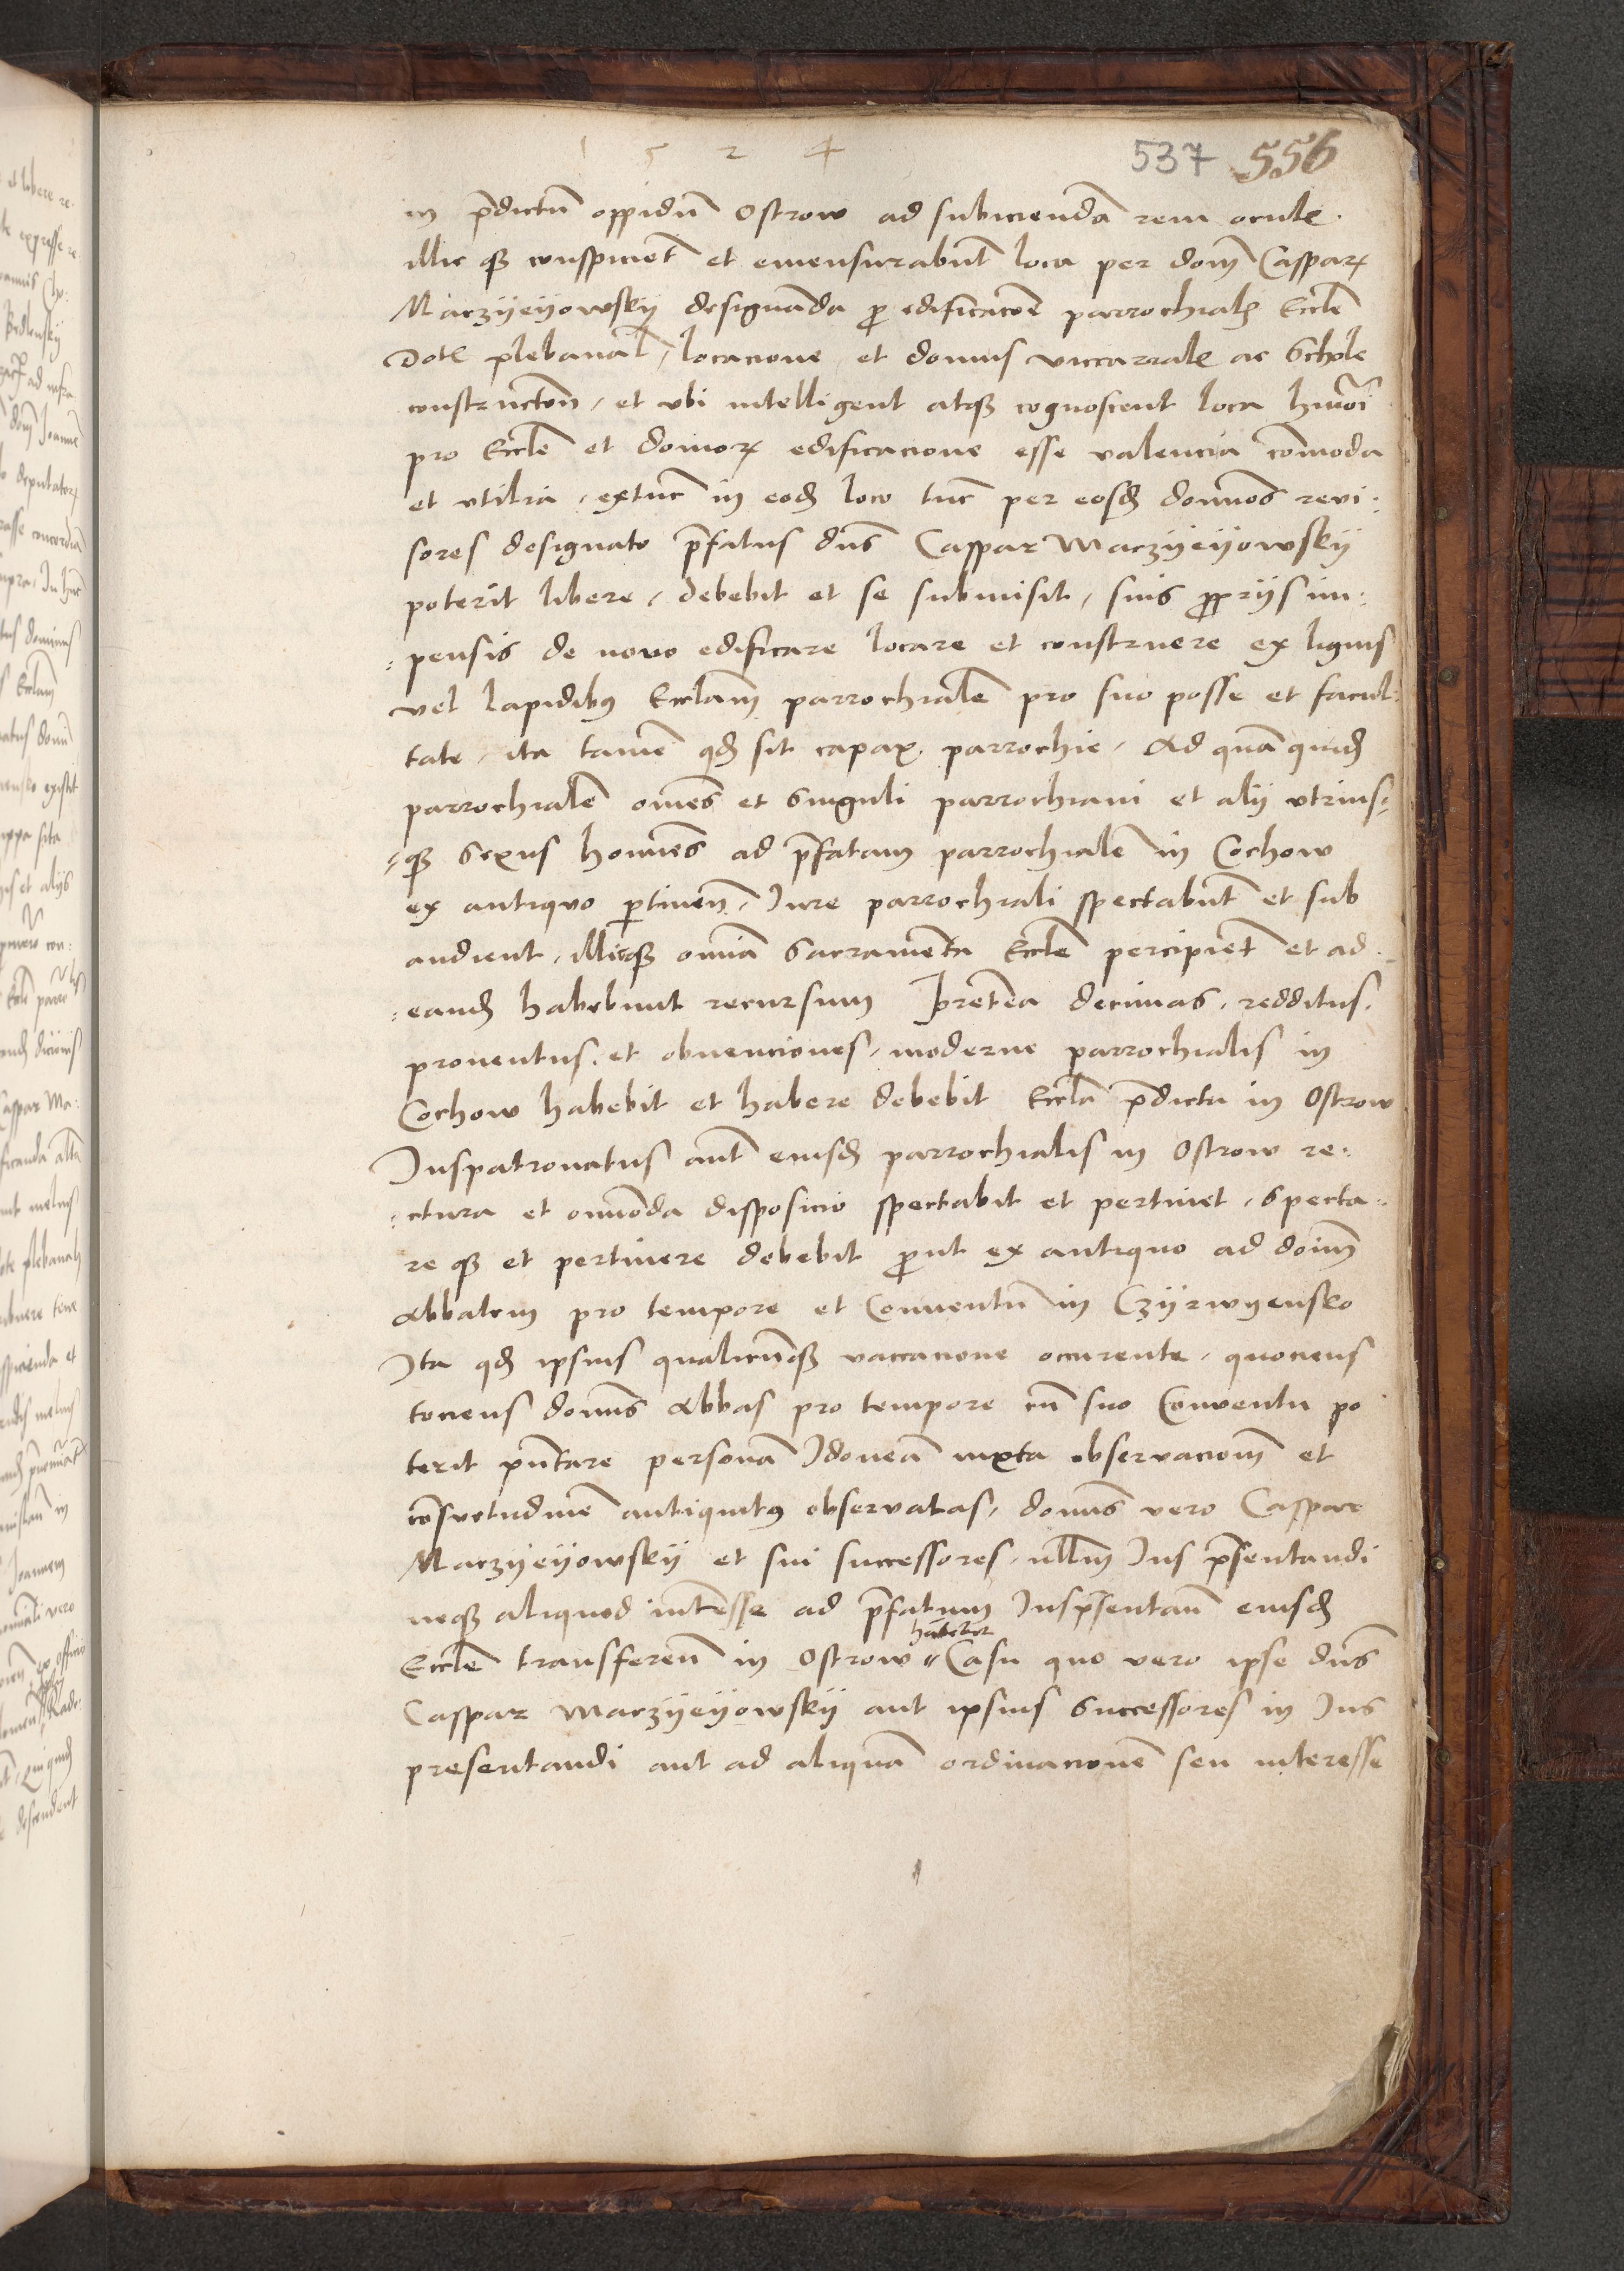 1 5 2 4
537 556
in p̄dictū oppidū Ostrow ad subiiciendā rem ocule
illic qȝ conspiciēt et emensurabūt loca per dom̄ Casparꝫ
Maczyeyowsky designanda p̄ edificacōe parrochialꝫ Eccle͞
Dotꝭ plebanal̄, locacione et domus viccarialꝭ ac Schole
constructoñ, et vbi intelligent atqȝ cognoscent loca hm̄oi
pro Eccle͞ et domoꝝ edificacione esse valencia cōmoda
et vtilia, extunc in eodꝫ loco tūc per eosdꝫ domnos reui:
sores designato p̄fatus dn̄s Caspar Maczyeyowsky
poterit libere, debebit et se submisit, suis pp̄rijs im:
pensis de nouo edificare locare et construere ex lignis
vel lapidibꝰ Eccl̄am parrochialē pro suo posse et facul:
tate, ita tamē qdꝫ sit capax parrochie, Ad quā quidꝫ
parrochialē om̄es et singuli parrochiani et alij vtrius:
qȝ Sexus homīes ad p̄fatam parrochialē in Cochow
ex antiquo ꝑtineñ, Iure parrochiali spectabūt et sub
audient, illicqȝ om̄ia Sacramēta Eccle͞ percipiēt et ad
eandꝫ habebunt recursum Pretēa decimas, redditus,
prouentus, et obuenciones, moderne parrochialis in
Cochow habebit et habere debebit Eccl̄a p̄dicta in Ostrow
Juspatronatus aūt eiusdꝫ parrochialis in Ostrow re:
ctura et om̄oda disposicio spectabit et pertinet, Specta:
re qȝ et pertinere debebit p̄ut ex antiquo ad doīm
Abbatem pro tempore et Conuentū in Czyrwyensko
Ita qdꝫ ipsius qualicūqȝ vaccacione occurente, quociens
tociens domīs Abbas pro tempore cū suo Conuentu po
terit p̄ntare personā Idoneā iuxta obseruaciōm et
cōsuetudinē antiquitꝰ obseruatas, domīs vero Caspar
Maczyeyowsky et sui successores, ull̄m Jus p̄sentandi
neqȝ aliquod intēsse ad p̄fatum Jusp̄sentan̄ eiusdꝫ
habebit
Eccle͞ transfereñ in Ostrow Casu quo vero ipse dn̄s
Caspar Maczyeyowsky aut ipsius Successores in Jus
presentandi aut ad aliquā ordinacionē seu interesse